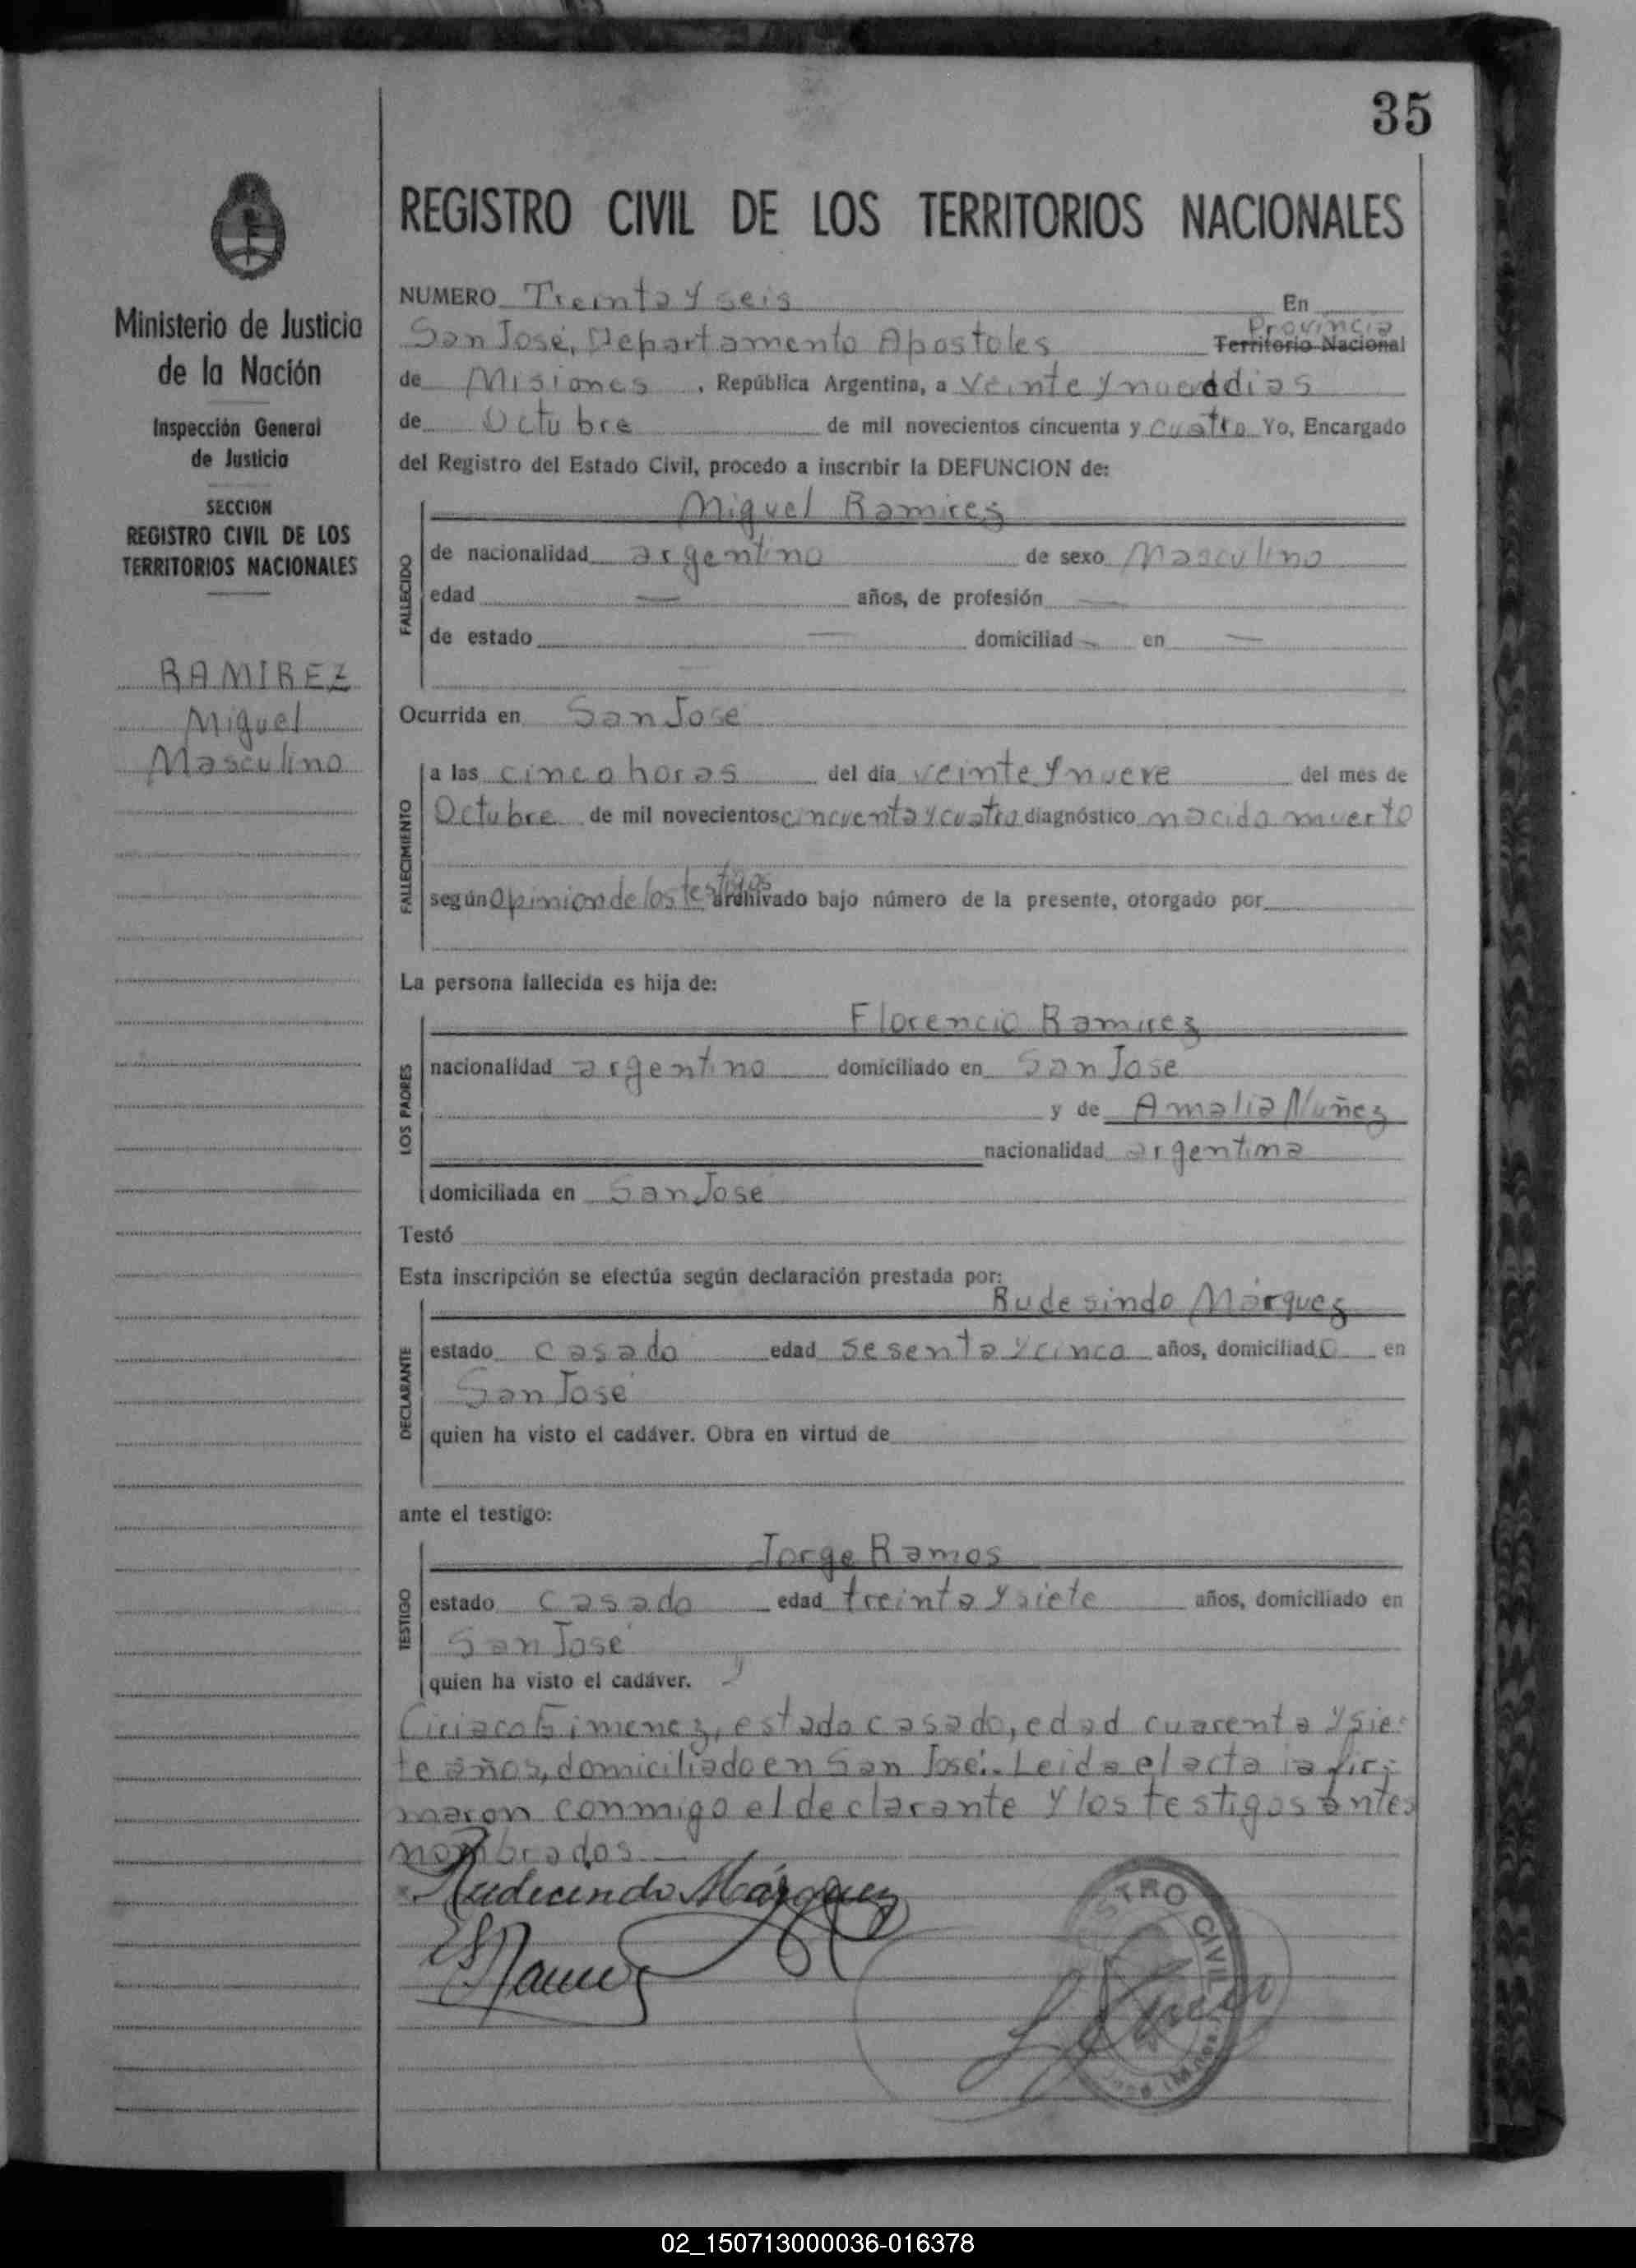 35
REGISTRO CIVIL DE LOS TERRITORIOS NACIONALES
Ministerio de Justicia
de la Nación
Inspección General
de Justicia
SECCION
REGISTRO CIVIL DE LOS
TERRITORIOS NACIONALES
RAMIREZ
Miguel
Masculino
NUMERO Treinta y seis En
San José, Departamento Apostoles Provincia Territorio Nacional
de Misiones, República Argentina, a veinte y nueve dias
de Octubre de mil novecientos cincuenta y cuatro Yo, Encargado
del Registro del Estado Civil, procedo a inscribir la DEFUNCION de:
Miguel Ramirez
FALLECIDO
de nacionalidad argentino de sexo Masculino
edad — años, de profesión —
de estado — domiciliad - en —
Ocurrida en San José
FALLECIMIENTO
a las cinco horas del día veinte y nueve del mes de
Octubre de mil novecientos cincuenta y cuatro diagnóstico nacido muerto
según opinion de los testigos archivado bajo número de la presente, otorgado por
La persona fallecida es hija de:
Florencio Ramirez
LOS PADRES
nacionalidad argentino domiciliado en San José
y de Amalia Nuñez
nacionalidad argentina
domiciliada en San José
Testó
Esta inscripción se efectúa según declaración prestada por:
Rudesindo Márquez
DECLARANTE
estado casado edad sesenta y cinco años, domiciliado en
San José
quien ha visto el cadáver. Obra en virtud de
ante el testigo:
Jorge Ramos
TESTIGO
estado casado edad treinta y siete años, domiciliado en
San José
quien ha visto el cadáver. y
Ciriaco Gimenez, estado casado, edad cuarenta y sie-
te años, domiciliado en San José.- Leida el acta la fir-
maron conmigo el declarante y los testigos antes
nombrados.—
Rudecindo Márquez
REGISTRO CIVIL
02_150713000036-016378